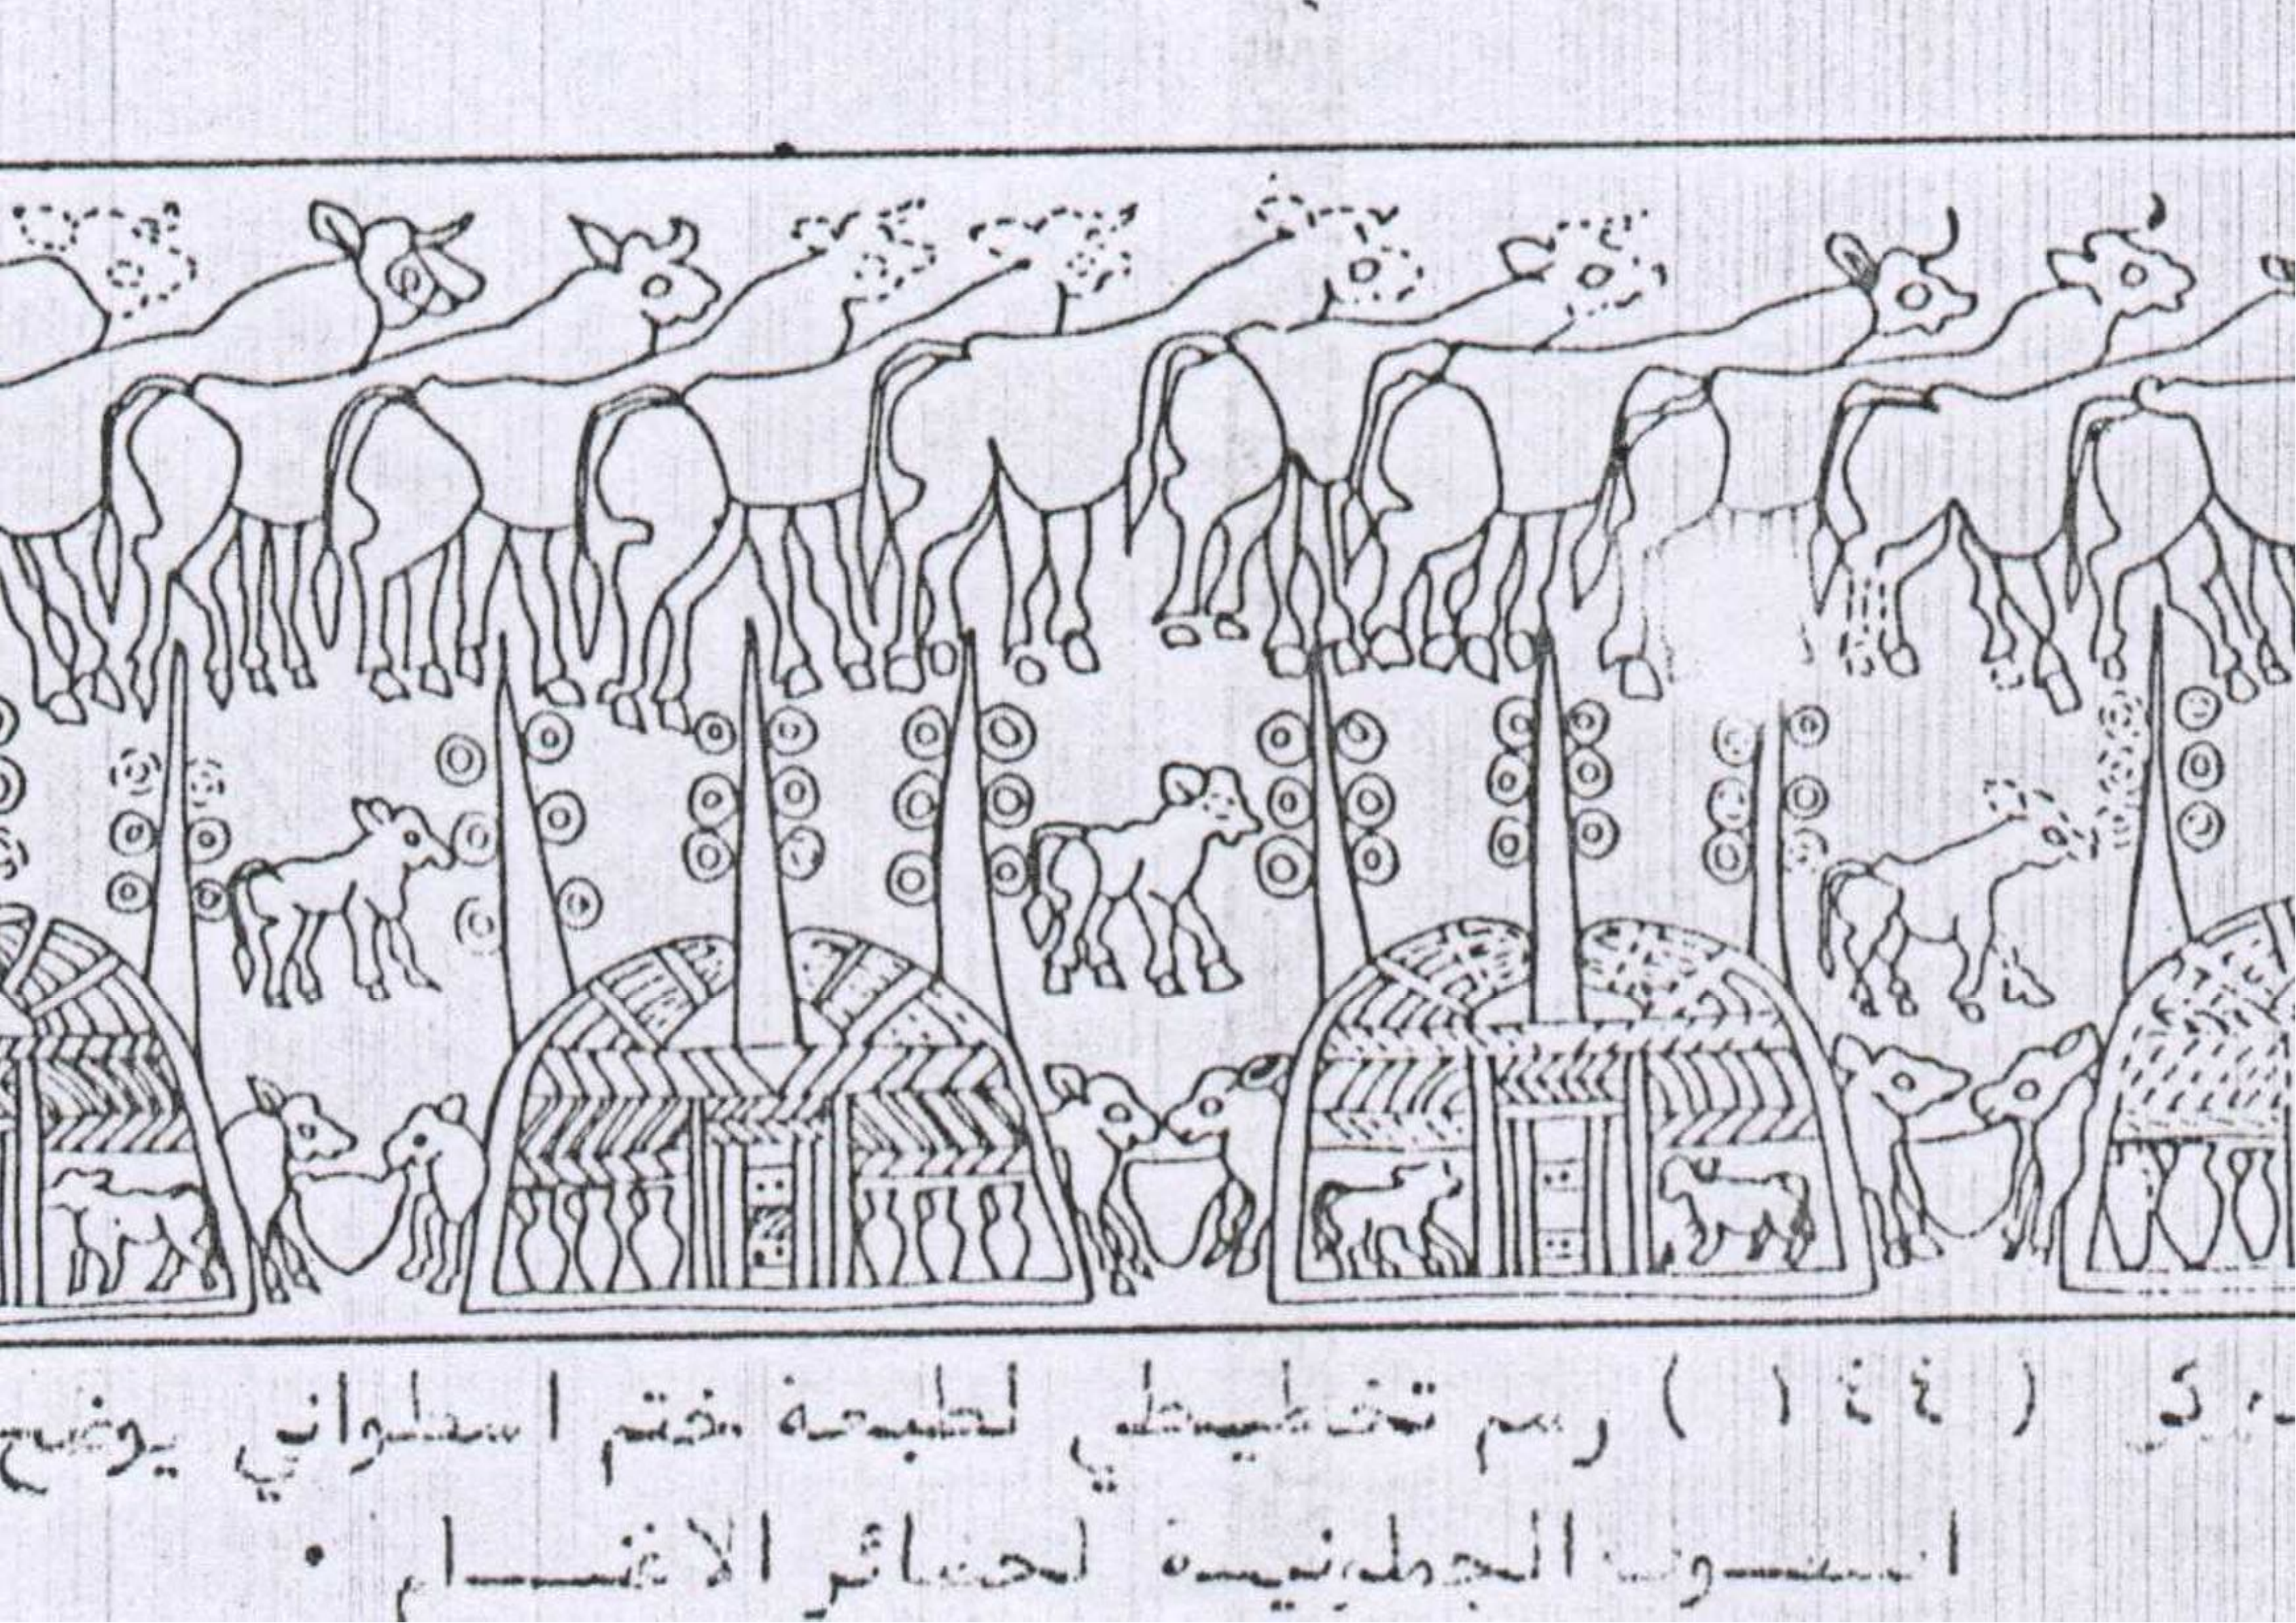 ( ١٤٤ ) رسم تخطيطي لطبعة ختم اسطواني يوضح
الجملونية لحضائر الاغنام .